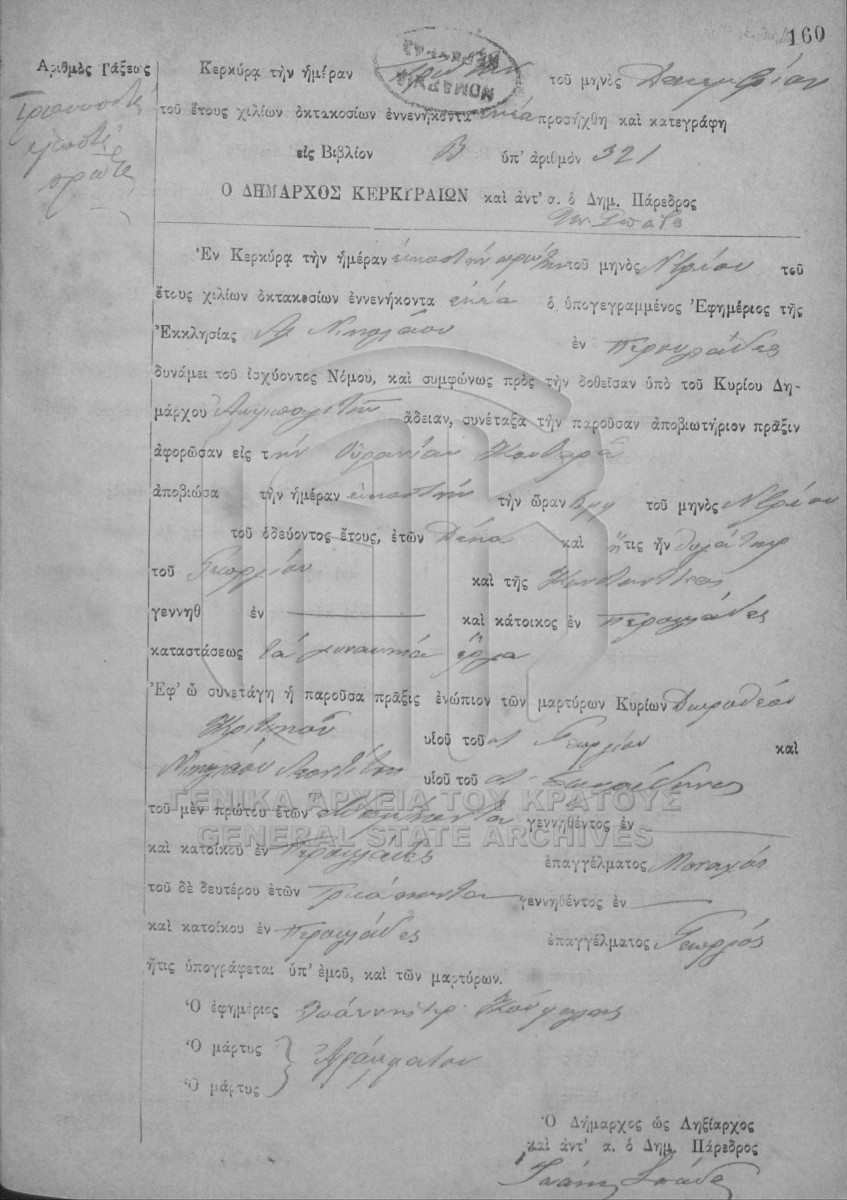 160
Ἀριθμὸς Τάξεως
Κερκύρᾳ τὴν ἡμέραν Πρώτην τοῦ μηνὸς Δεκεμβρίου
ΝΟΜΑΡΧΙΑ ΚΕΡΚΥΡΑΣ
τοῦ ἔτους χιλίων ὀκτακοσίων ἐννενήκοντα ἐνέα προσήχθη καὶ κατεγράφη
εἰς Βιβλίον Β ὑπ' ἀριθμὸν 321
Ο ΔΗΜΑΡΧΟΣ ΚΕΡΚΥΡΑΙΩΝ καὶ ἀντ' α. ὁ Δημ. Πάρεδρος
Ἐν Κερκύρᾳ τὴν ἡμέραν εἰκοστήν πρώτην τοῦ μηνὸς Νβρίου τοῦ
ἔτους χιλίων ὀκτακοσίων ἐννενήκοντα ἐνέα ὁ ὑπογεγραμμένος Ἐφημέριος τῆς
Ἐκκλησίας Αγ Νικολάου ἐν Περουλάδες
δυνάμει τοῦ ἰσχύοντος Νόμου, καὶ συμφώνως πρὸς τὴν δοθεῖσαν ὑπὸ τοῦ Κυρίου Δη-
μάρχου ἄδειαν, συνέταξα τὴν παροῦσαν ἀποβιωτήριον πρᾶξιν
ἀφορῶσαν εἰς τὴν Οὐρανίαν
ἀποβιώσα τὴν ἡμέραν εἰκοστήν τὴν ὥραν τοῦ μηνὸς Νβρίου
τοῦ ὁδεύοντος ἔτους, ἐτῶν Δέκα καὶ ἥτις ἦν θυγάτηρ
τοῦ Γεωργίου καὶ τῆς Κωνσταντίνας
γεννηθ ἐν — καὶ κάτοικος ἐν Περουλάδες
καταστάσεως τά γυναικεῖα ἔργα
Ἐφ' ᾧ συνετάγη ἡ παροῦσα πρᾶξις ἐνώπιον τῶν μαρτύρων Κυρίων Δωροθέου
Κριτικοῦ υἱοῦ τοῦ Γεωργίου καὶ
Νικολάου υἱοῦ τοῦ Σπυρίδωνος
ΓΕΝΙΚΑ ΑΡΧΕΙΑ ΤΟΥ ΚΡΑΤΟΥΣ
τοῦ μὲν πρώτου ἐτῶν γεννηθέντος ἐν —
GENERAL STATE ARCHIVES
καὶ κατοίκου ἐν Περουλάδες ἐπαγγέλματος Μοναχός
τοῦ δὲ δευτέρου ἐτῶν Τριάκοντα γεννηθέντος ἐν —
καὶ κατοίκου ἐν Περουλάδες ἐπαγγέλματος Γεωργός
ἥτις ὑπογράφεται ὑπ' ἐμοῦ, καὶ τῶν μαρτύρων.
Ὁ ἐφημέριος
Ὁ μάρτυς Ἀγράμματοι
Ὁ μάρτυς
Ὁ Δήμαρχος ὡς Ληξίαρχος
καὶ ἀντ' α. ὁ Δημ. Πάρεδρος